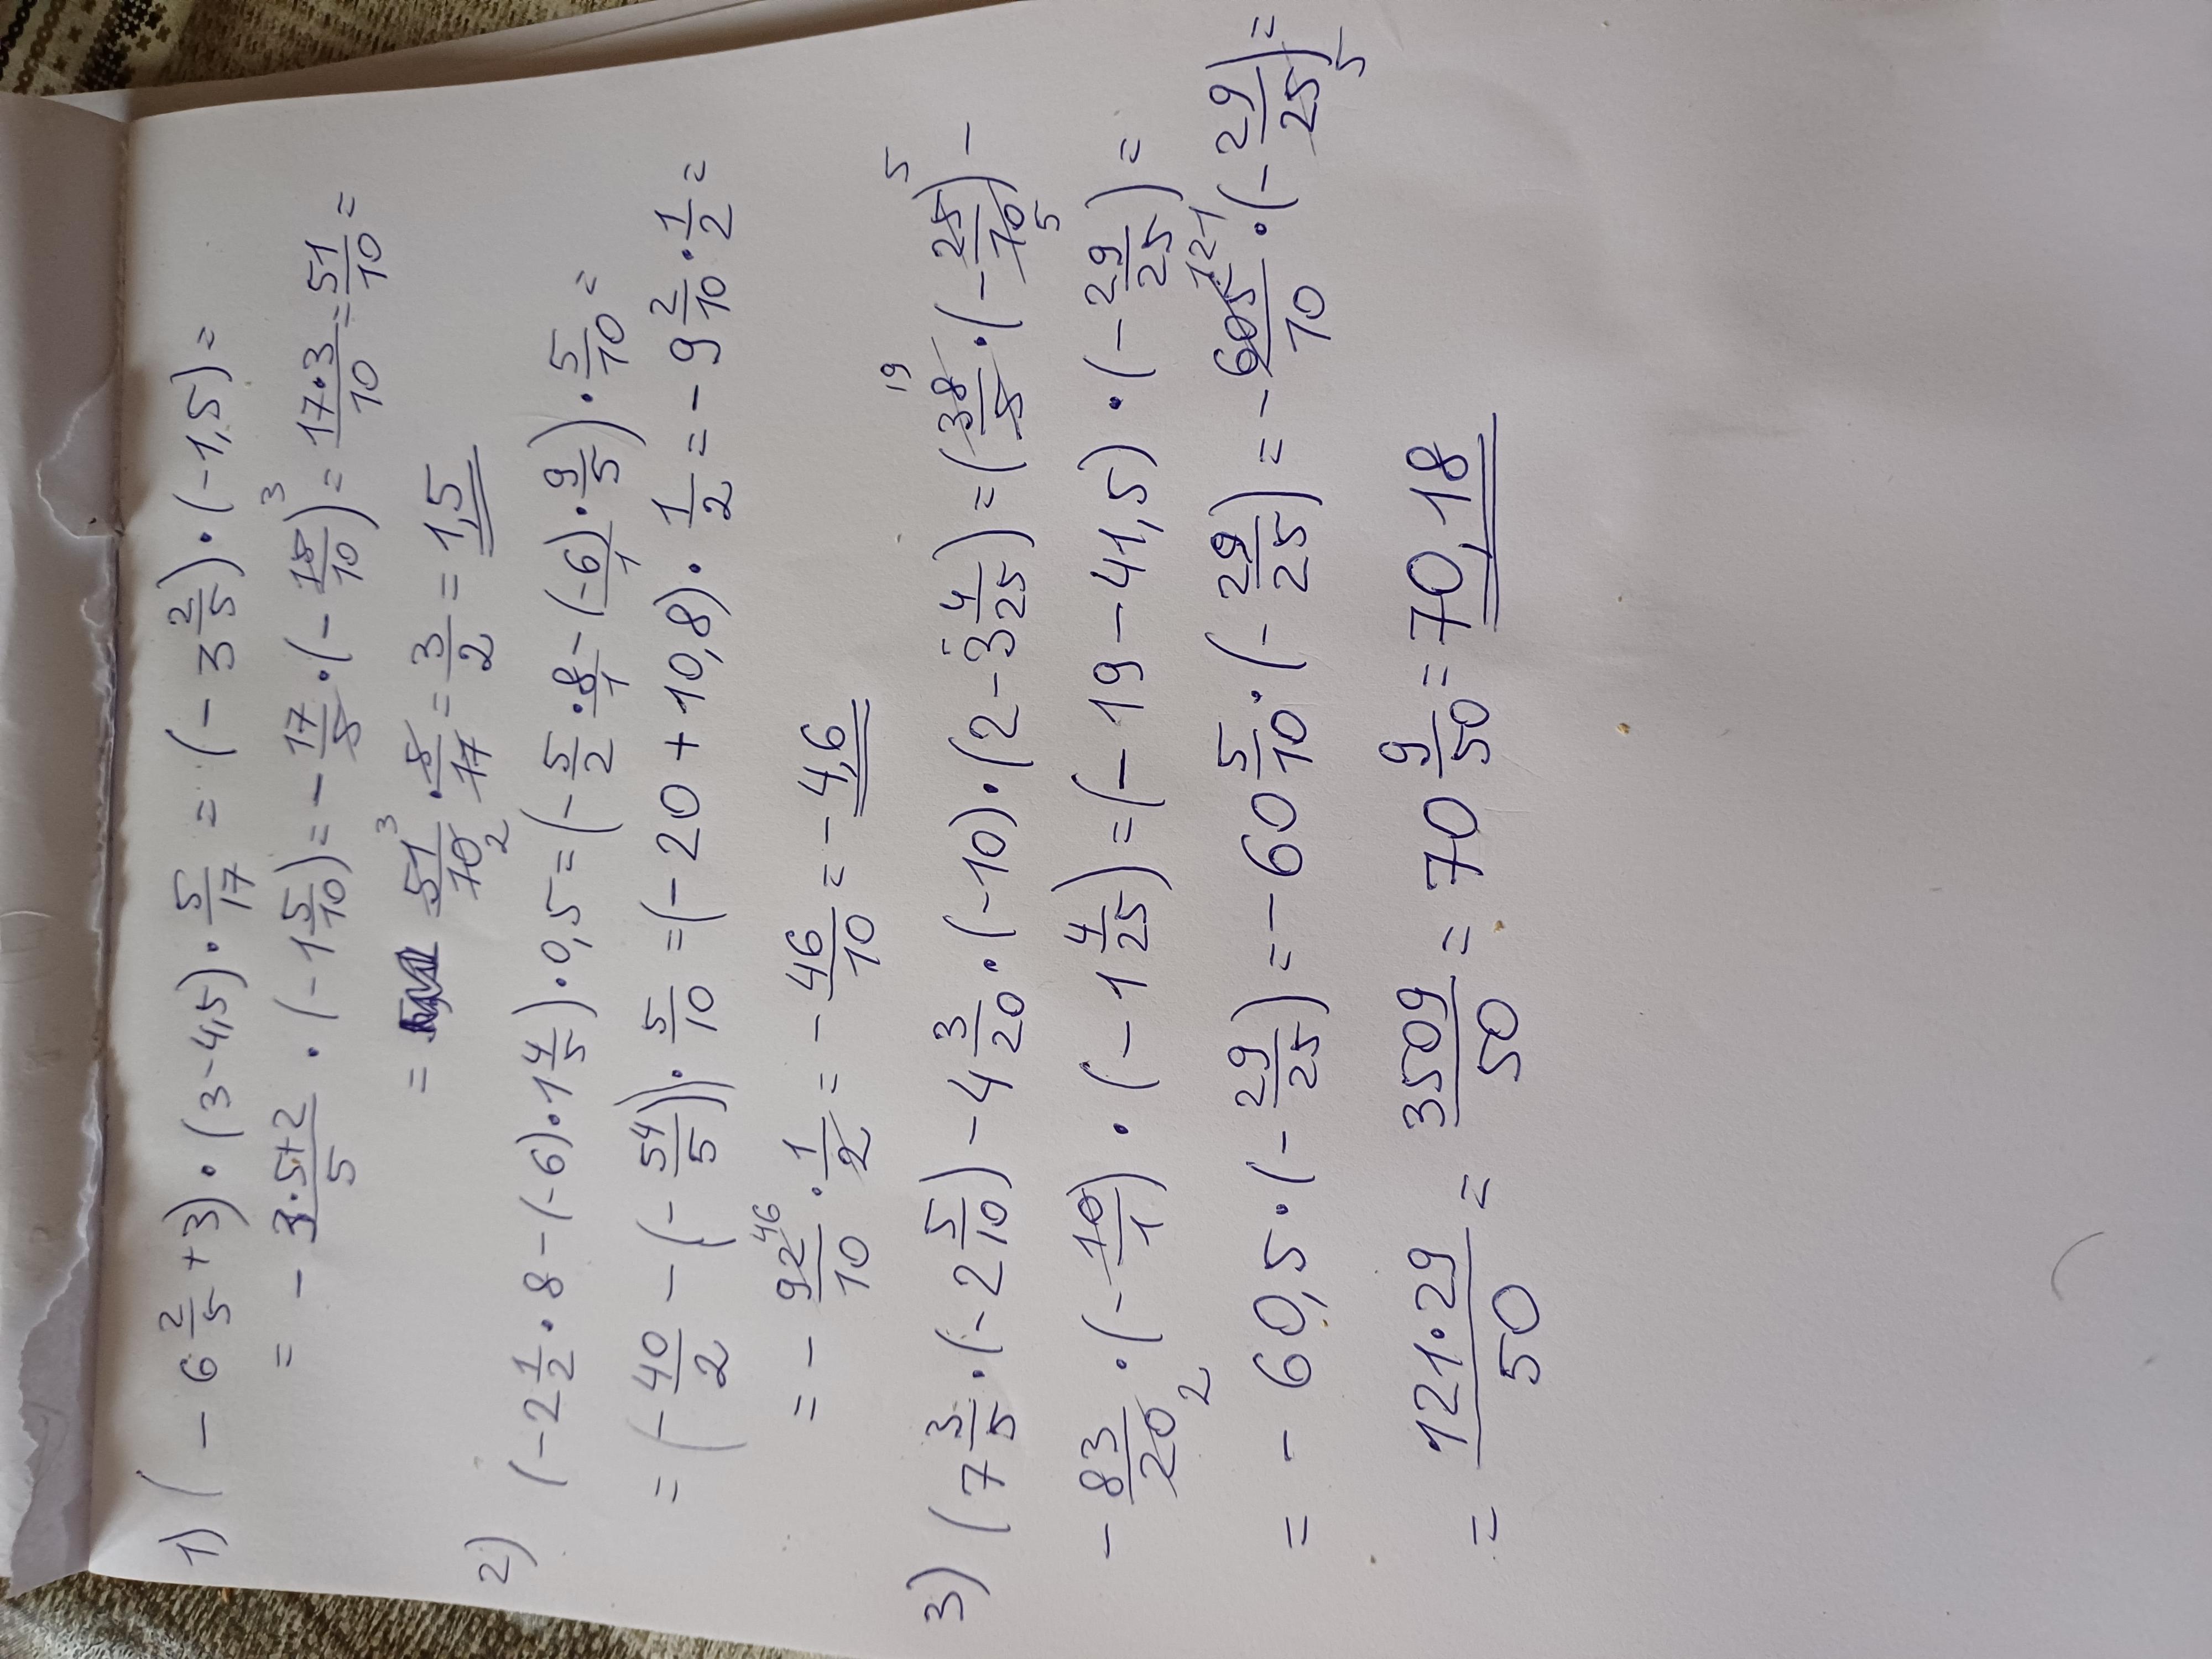 1) (- 6 2/5 + 3) · (3 - 4,5) · 5/17 = (- 3 2/5) · (-1,5) =
= - 3·5+2/5 · (-1 5/10) = - 17/5 · (- 15/10) 3 = 17·3/10 = 51/10 =
= 51/10 3 2 · 5/17 = 3/2 = 1,5
2) (-2 1/2 · 8 - (-6) · 1 4/5) · 0,5 = (- 5/2 · 8/1 - (-6)/1 · 9/5) · 5/10 =
= (- 40/2 - (- 54/5)) · 5/10 = (- 20 + 10,8) · 1/2 = - 9 2/10 · 1/2 =
= - 92/10 46 · 1/2 = - 46/10 = - 4,6
3) (7 3/5 · (-2 5/10) - 4 3/20 · (-10) · (2 - 3 4/25) = (38/5 19 · (- 25/10) 5 5 -
- 83/20 2 · (- 10/1) · (-1 4/25) = (- 19 - 41,5) · (- 29/25) =
= - 60,5 · (- 29/25) = - 60 5/10 · (- 29/25) = - 605/10 121 · (- 29/25) 5 =
= 121·29/50 = 3509/50 = 70 9/50 = 70,18